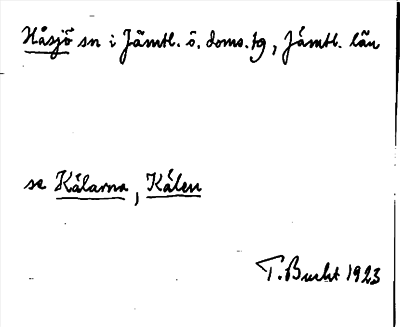 Håsjö sn i Jämtl. ö. doms.tg, Jämtl. län
se Kälarna, Kälen
T. Bucht 1923